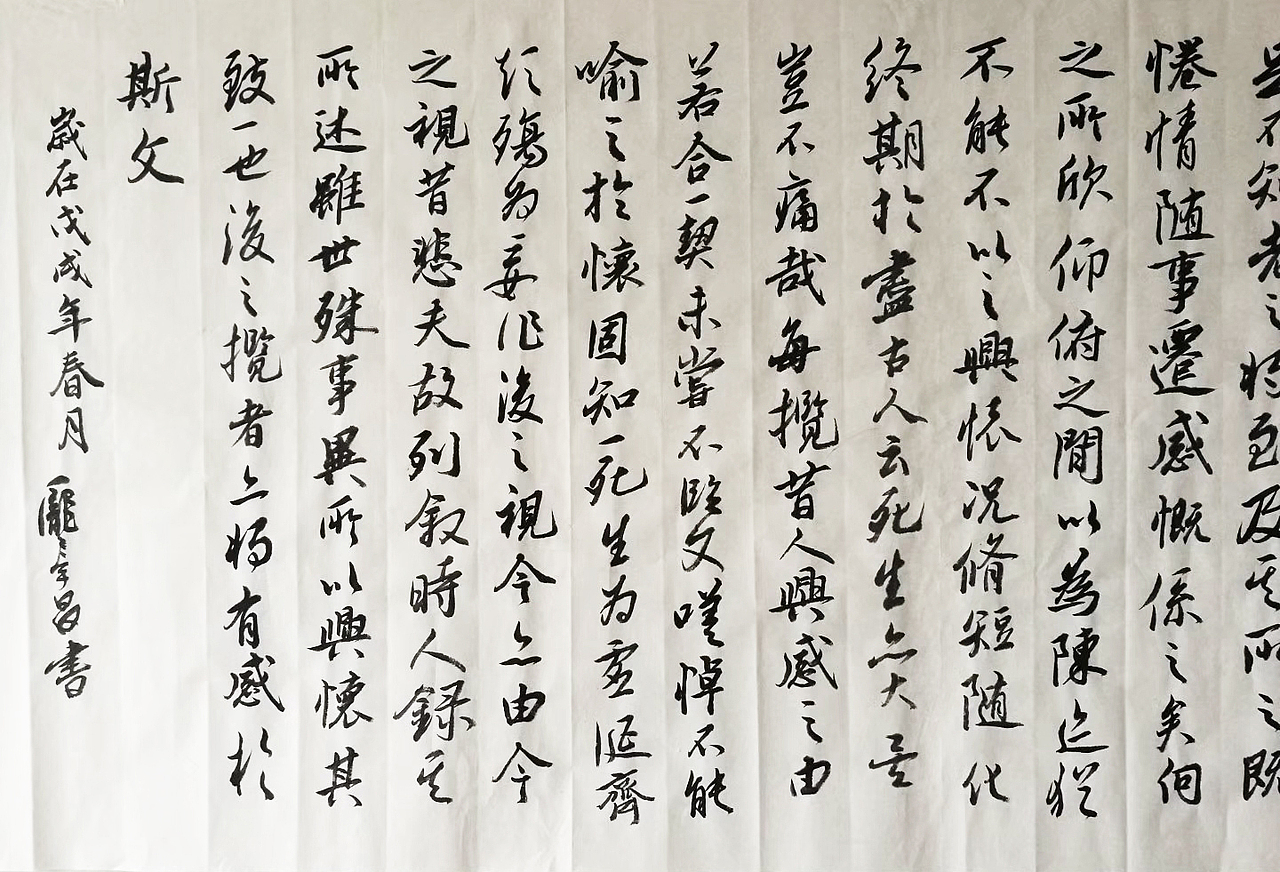 足不知老之將至及其所之既
惓情随事遷感慨係之矣向
之所欣仰俯之間以為陳迹猶
不能不以之興懷况脩短随化
終期於盡古人云死生亦大矣
豈不痛哉每攬昔人興感之由
若合一契未嘗不臨文嗟悼不能
喻之於懷固知一死生為虚誕齊
彭殤為妄作後之視今亦由今
之視昔悲夫故列叙時人録其
所述雖世殊事異所以興懷其
致一也後之攬者亦將有感於
斯文
歲在戊戌年春月 龐昌書